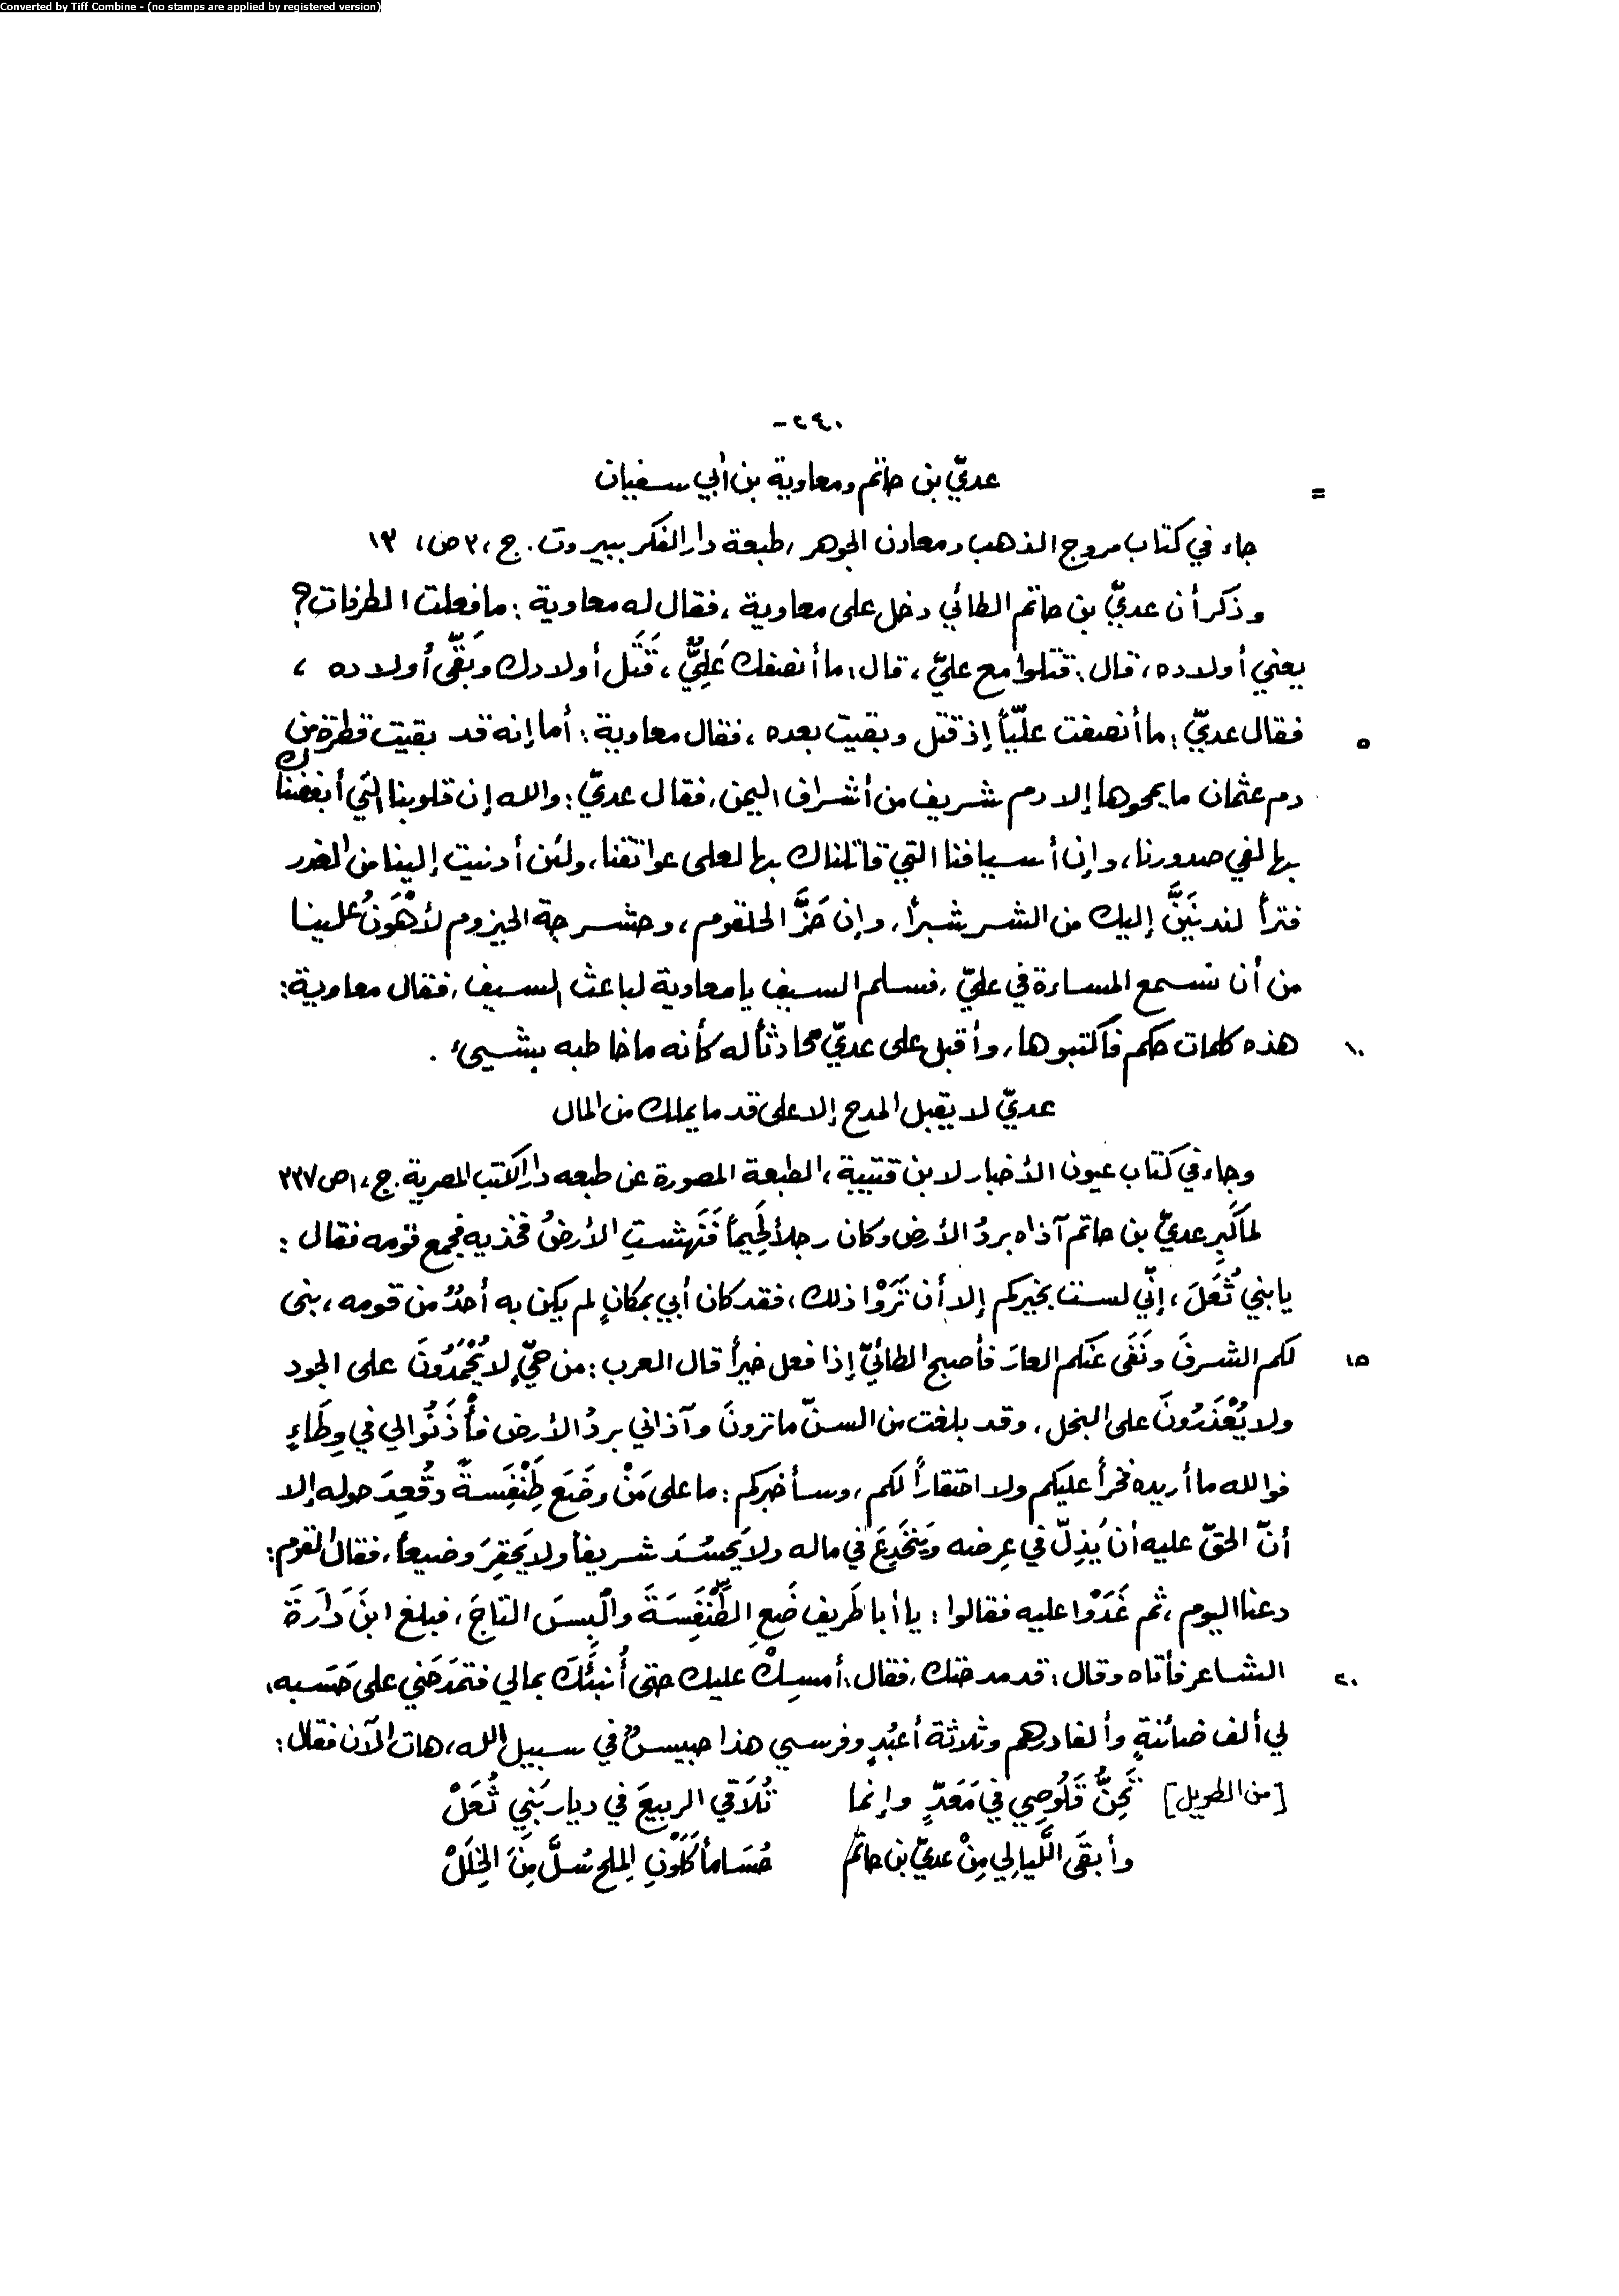 Converted by Tiff Combine - (no stamps are applied by registered version)
-٢٤٠
= عديّ بن حاتم ومعاوية بن أبي سفيان
جاء في كتاب مروج الذهب ومعادن الجوهر، طبعة دار الفكر ببيروت. ج، ٣ ص، ١٣
وذكر أن عديّ بن حاتم الطائي دخل على معاوية، فقال له معاوية: ما فعلت الطرفات؟
يعني أولاده، قال: قتلوا مع عليّ، قال: ما أنصفك عَلِيٌّ، قَتَل أولادك وبَقَّى أولاده،
فقال عديّ: ما أنصفت عليّاً إذ قتل وبقيت بعده، فقال معاوية: أما إنه قد بقيت قطرة من ٥
دم عثمان ما يمحوها إلا دم شريف من أشراف اليمن، فقال عديّ: والله إن قلوبنا التي أبغضناك
بها لفي صدورنا، وإن أسيافنا التي قاتلناك بها لعلى عواتقنا، ولئن أدنيت إلينا من الغدر
فتراً لندنيَنَّ إليك من الشر شبراً، وإن حَزَّ الحلقوم، وحشرجة الحيزوم لأَهْوَنُ علينا
من أن نسمع المساءة في عليّ، فسلم السيف يا معاوية لباعث السيف، فقال معاوية:
هذه كلمات حكم فاكتبوها، وأقبل على عديّ محادثاً له كأنه ما خاطبه بشيئ. ١٠
عديّ لا يقبل المدح إلا على قد ما يملك من المال
وجاء في كتاب عيون الأخبار لابن قتيبة، الطبعة المصورة عن طبعه دار الكتب المصرية. ج، ١ ص ٣٣٧
لما كَبِر عديّ بن حاتم آذاه بردُ الأرض وكان رجلاً لَحِيماً فَنَهشتِ الأرضُ فخذيه فجمع قومه فقال:
يا بني ثُعَلَ، إنّي لست بخيركم إلا أن تَرَوْا ذلك، فقد كان أبي بمكانٍ لم يكن به أحدٌ من قومه، بنى
لكم الشرفَ ونَفَى عَنكم العارَ فأصبح الطائيّ إذا فعل خيراً قال العرب: من حيٍّ لا يُحْمَدُونَ على الجود ١٥
ولا يُعْذَرُونَ على البخل، وقد بلغت من السنّ ما ترونَ وآذاني بردُ الأرض فأْذَنُوا لي في وِطَاءٍ
فوالله ما أريده فخراً عليكم ولا احتقاراً لكم، وسأخبركم: ما على مَنْ وضَعَ طِنْفِسةً وقُعِدَ حوله إلا
أنّ الحقّ عليه أن يَذِلّ في عِرضه ويَنخَدِعَ في ماله ولا يَحسُدَ شريفاً ولا يَحقِرَ وضيعاً، فقال القوم:
دعنا اليوم، ثم غَدَوْا عليه فقالوا: يا أبا طَريف ضَعِ الطِّنْفِسَةَ والْبِسَ التاجَ، فبلغ ابنَ دَارَةَ
الشاعر فأتاه وقال: قد مدحتك، فقال: أمسِكْ عليك حتى أُنبِئَكَ بمالي فتمدَحَني على حَسَبه، ٢٠
لي ألف ضائنةٍ وألفا درهم وثلاثة أعبُدٍ وفرسي هذا حبيسٌ في سبيل الله، هات الآن فقال:
[من الطويل] تَحِنُّ قَلُوصِي في مَعَدٍّ وإنما تُلاَقي الربيعَ في ديار بَنِي ثُعَلْ
وأبقَى اللَّيالِي مِنْ عديّ بن حاتم حُسَاماً كَلَوْنِ المِلحِ سُلَّ مِنَ الخِلَلْ